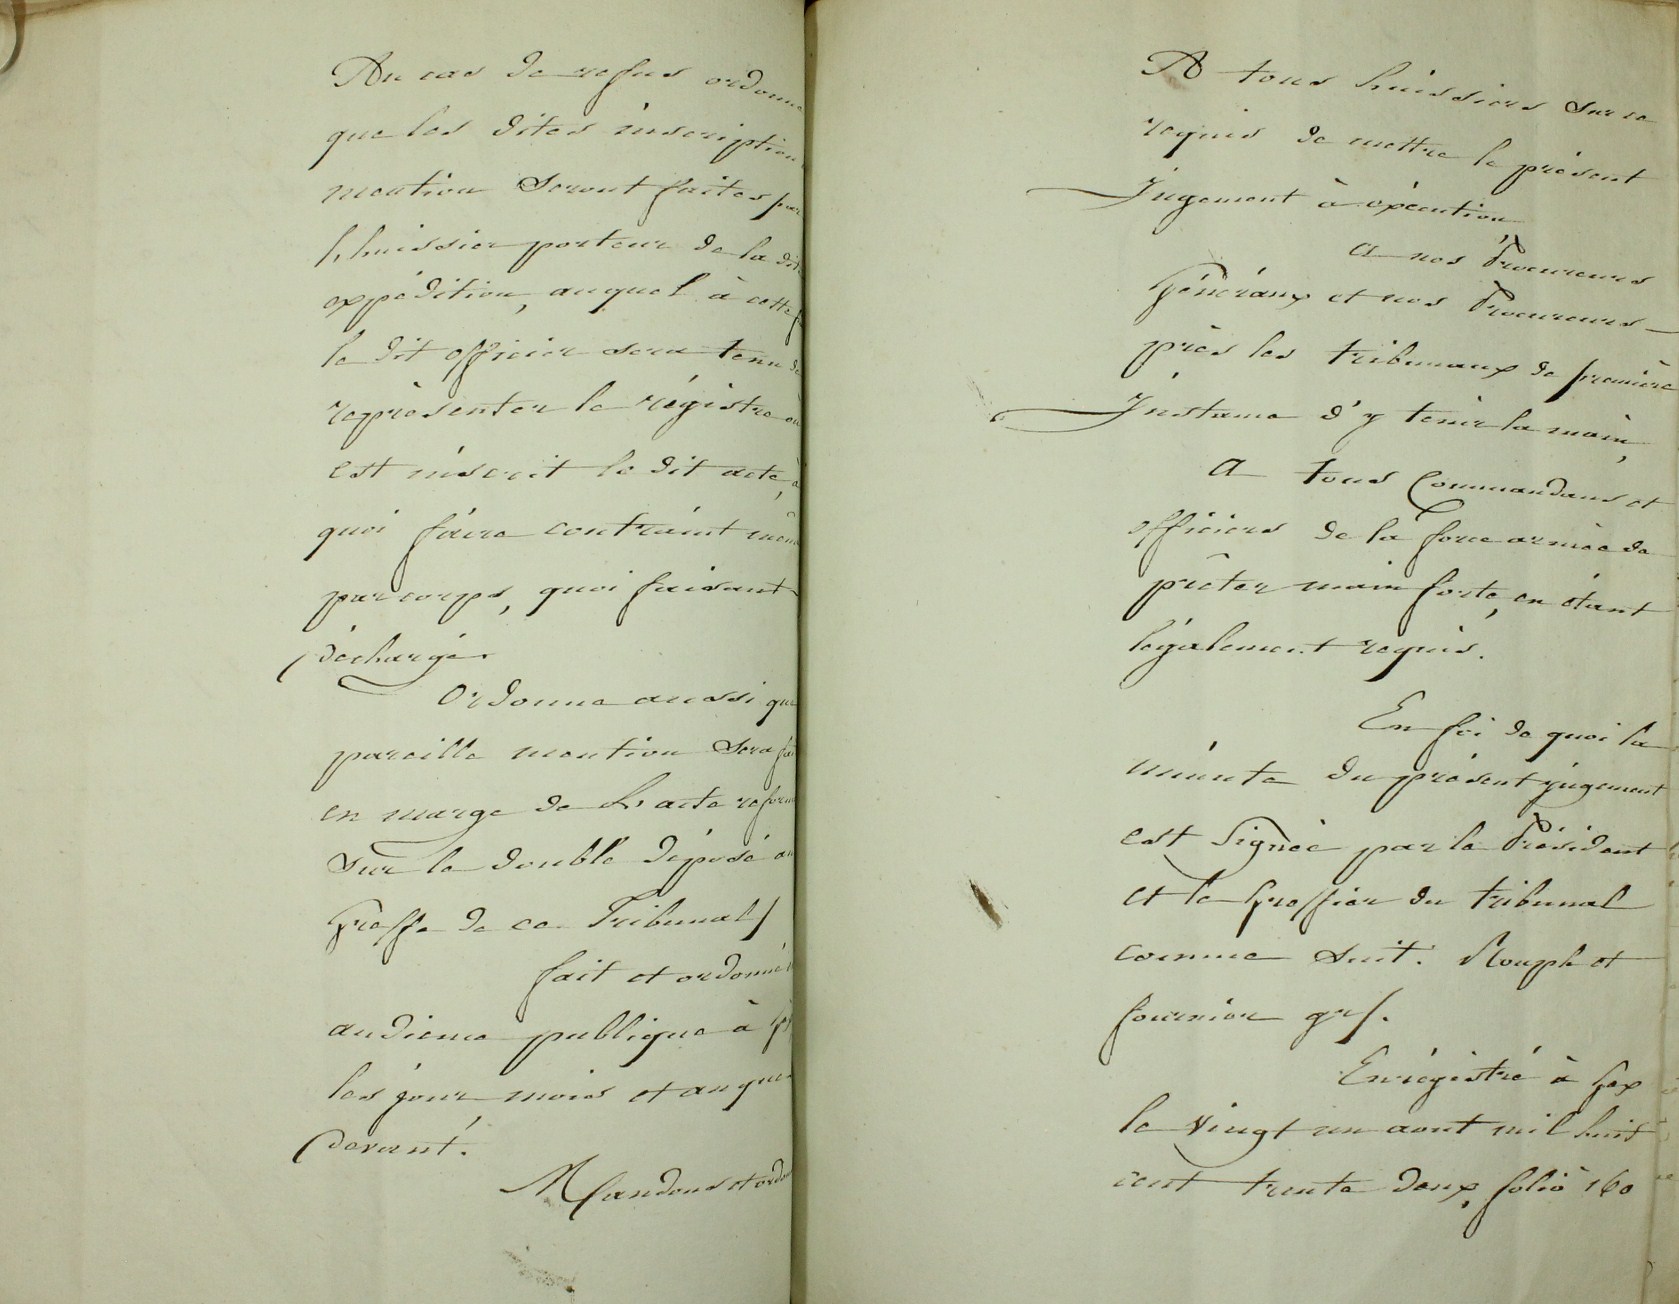 Au cas de refus ordonne
que les dites inscription
mention seront faites par
l'huissier porteur de la dite
expédition, auquel à cette f
le dit officier sera tenu de
représenter le régistre où
est inscrit le dit acte, à
quoi faire contraint même
par corps, quoi faisant
déchargé.
Ordonne aussi que
pareille mention sera fai
en marge de l'acte reform
sur le double déposé au
Greffe de ce Tribunal
fait et ordonné
audience publique à G
les jour mois et an que
devant.
Mandons et ordo
A tous huissiers sur ce
requis de mettre le présent
Jugement à éxécution
a nos Procureurs
Généraux et nos Procureurs
près les tribunaux de première
Instance d'y tenir la main,
a tous Commandans et
officiers de la force armée de
prêter main forte, en étant
légalement requis.
En foi de quoi la
minute du présent jugement
est signée par le Président
et le Greffier du tribunal
comme suit. Rouph et
fournier grf.
Enrégistré à Gex
le vingt un aout mil huit
cent trente deux, folio 160